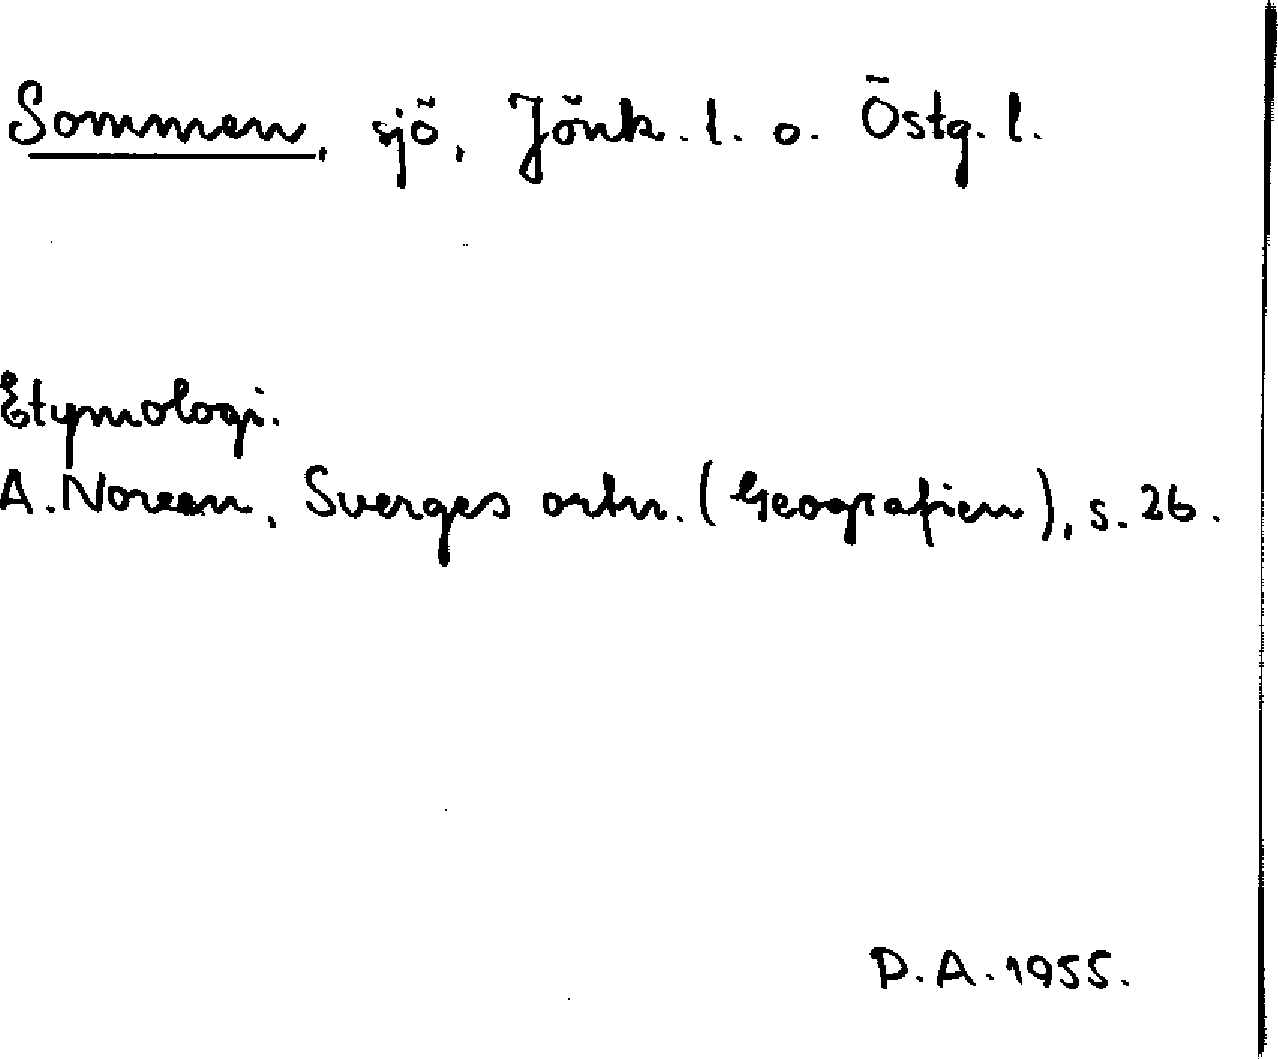 Sommen, sjö, Jönk. l. o. Östg. l.
Etymologi.
A. Noreen, Sverges ortn. (Geografien), s. 26.
D. A. 1955.